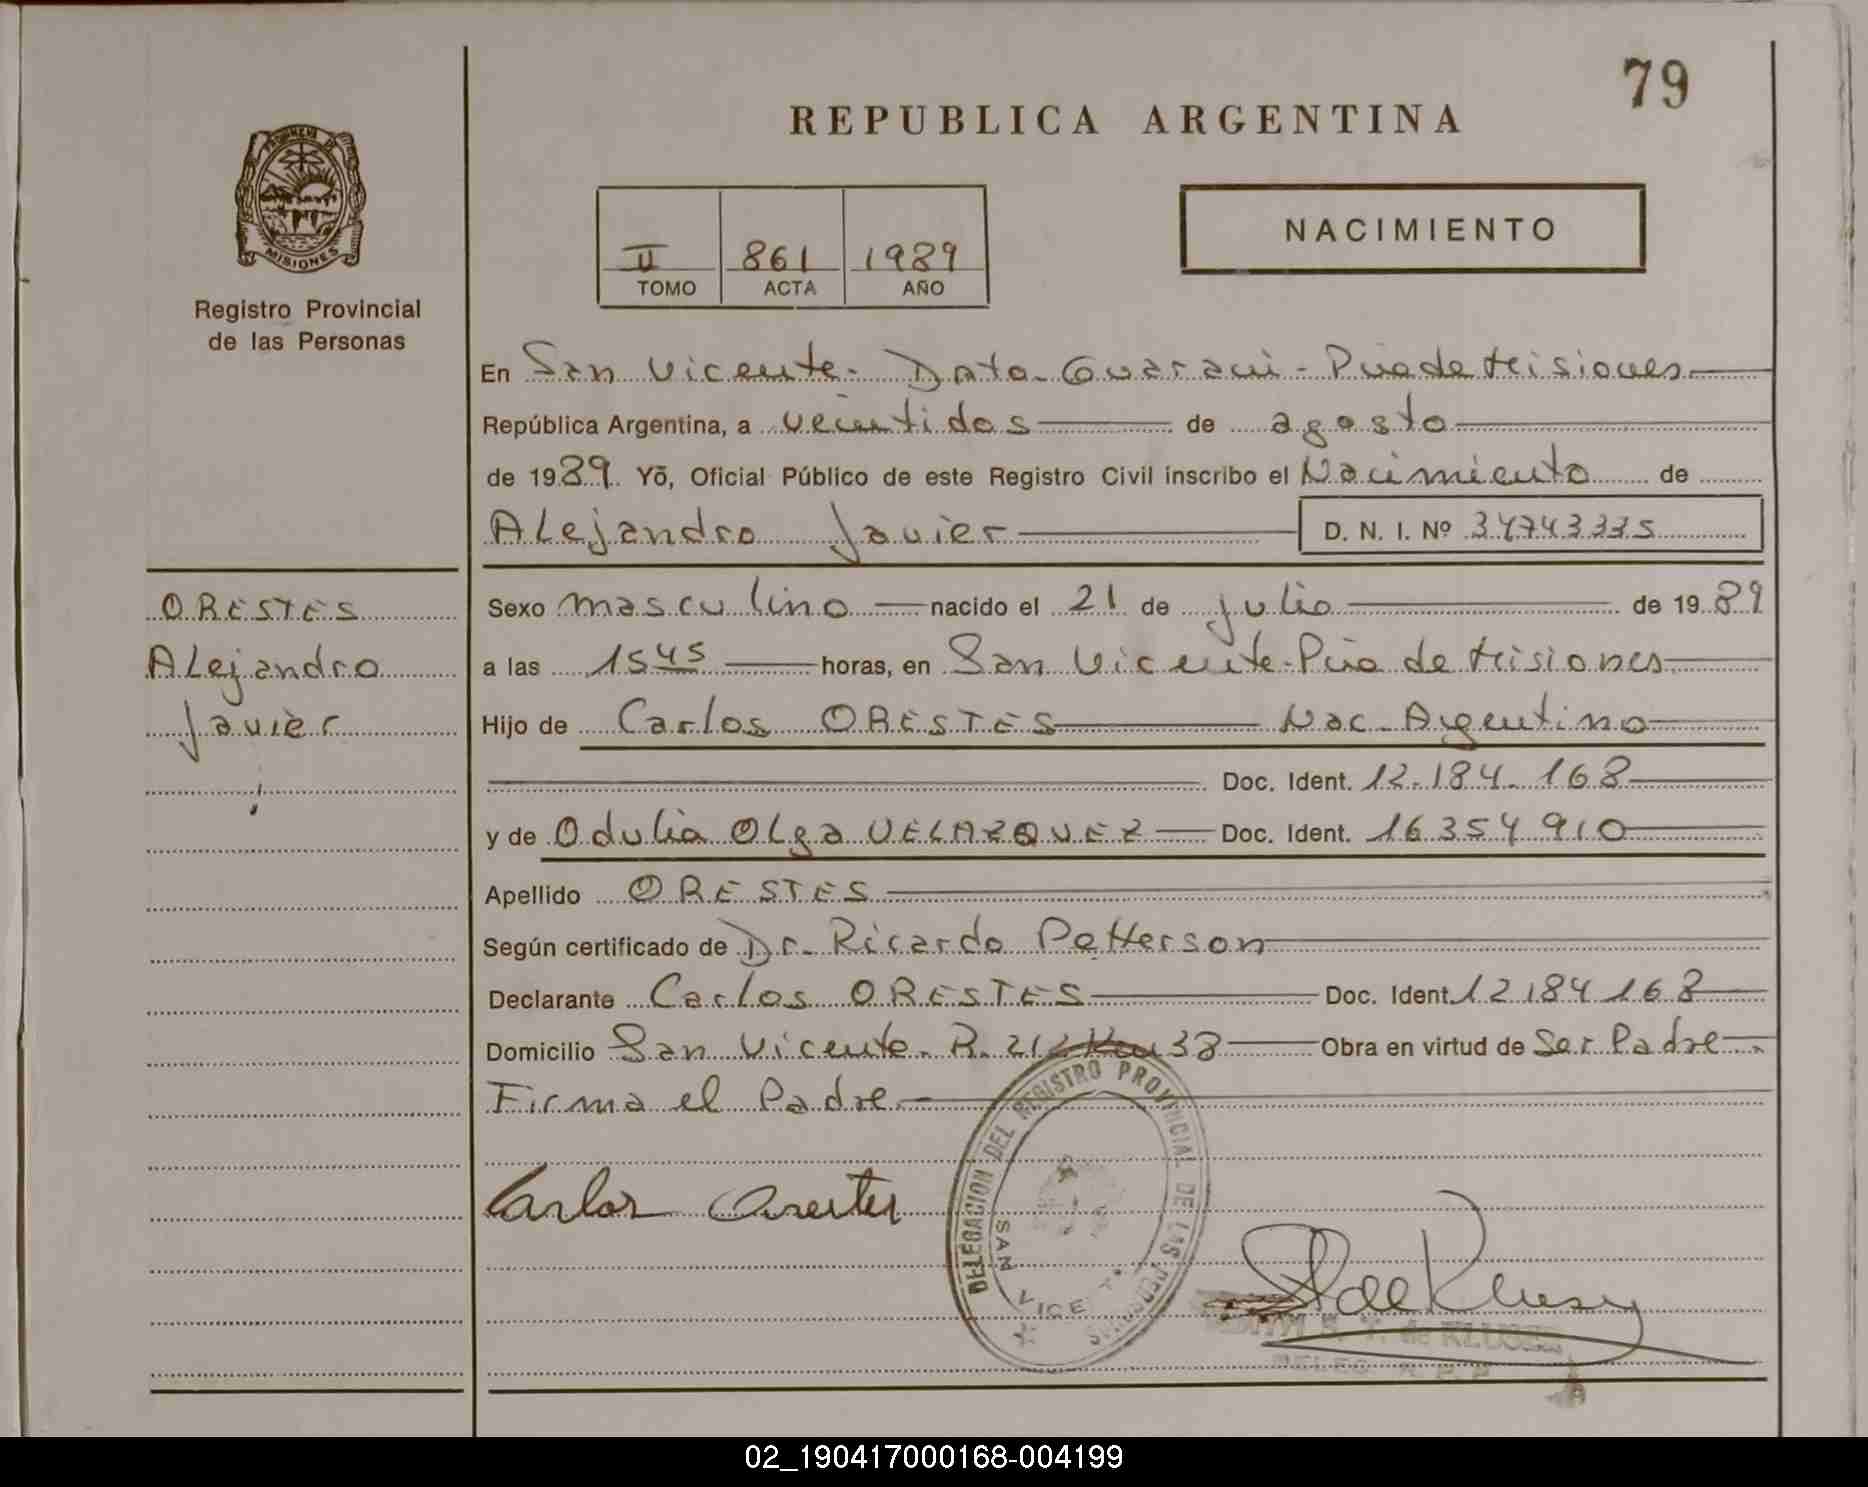 79
REPUBLICA ARGENTINA
PROVINCIA DE
MISIONES
Registro Provincial
de las Personas
II 861 1989
TOMO ACTA AÑO
NACIMIENTO
En San Vicente - Dpto. Guarani - Pcia de Misiones
República Argentina, a veintidos de agosto
de 1989. Yō, Oficial Público de este Registro Civil inscribo el Nacimiento de
Alejandro Javier D. N. I. Nº 34743335
ORESTES
Alejandro
Javier
Sexo masculino nacido el 21 de julio de 1989
a las 15 45 horas, en San Vicente - Pcia de Misiones
Hijo de Carlos ORESTES Nac. Argentino
Doc. Ident. 12.184.168
y de Odulia Olga VELAZQUEZ Doc. Ident. 16354910
Apellido ORESTES
Según certificado de Dr. Ricardo Petterson
Declarante Carlos ORESTES Doc. Ident. 12184168
Domicilio San Vicente - R. 212 Km 38 Obra en virtud de Ser Padre
Firma el Padre
Carlos Orestes
DELEGACION DEL REGISTRO PROVINCIAL DE LAS PERSONAS
SAN VICENTE
S. T. de KLUSE
DELEG. R. P. P.
02_190417000168-004199